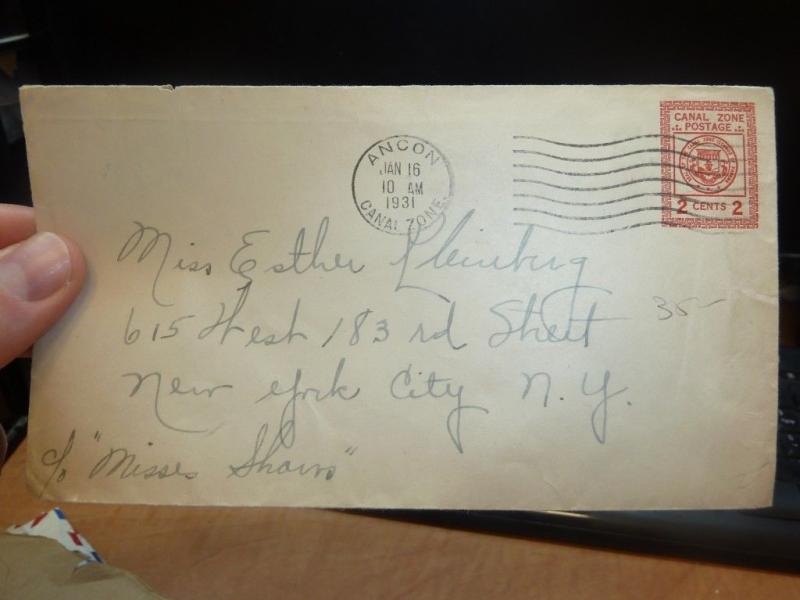 ANCON
JAN 16
10 AM
1931
CANAL ZONE
CANAL ZONE
POSTAGE
2 CENTS 2
Miss Esther
615 West 183 rd Street
35-
New York City N.Y.
c/o "Misses